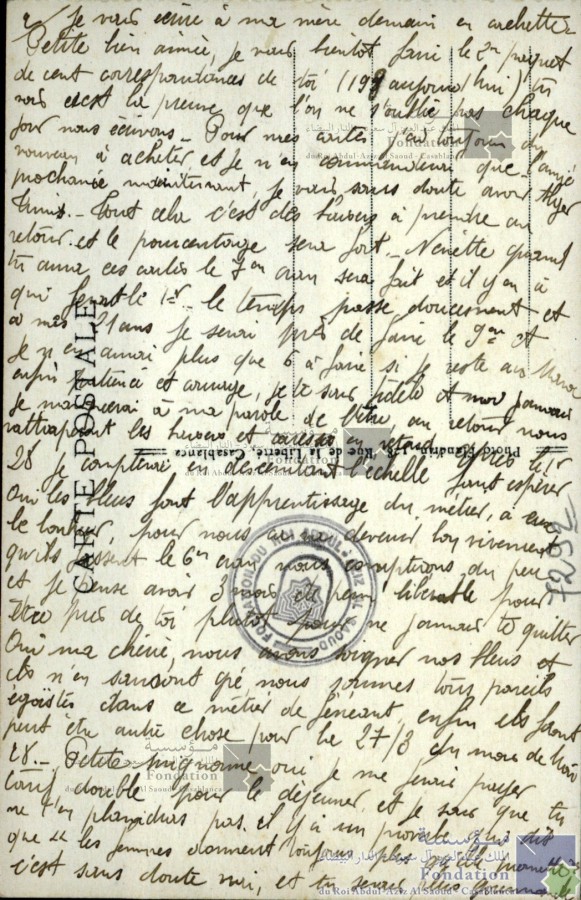 2/ Je vais écrire à ma mère demain en cachette
Petite bien aimée, je vais bientôt faire le 2m paquet
de cent correspondances de toi (198 aujourd'hui) tu
vois c'est la preuve que l'on ne s'oublie pas chaque
jour nous écrivons - Pour mes cartes j'en ai toujours du
nouveau à acheter et je n'en commanderai que l'année
prochaine maintenant, je vais sans doute avoir Alger
Tunis - Tout cela c'est des baisers à prendre au
retour et le pourcentage sera fort - Nénette quand
tu auras ces cartes le 7m cran sera fait et il y en a
qui feront le 1er - le temps passe doucement et
à mes 21 ans je serai près de faire le 9m et
je n'en aurai plus que 6 à faire si je reste au Maroc
enfin patience et courage, je te suis fidèle et moi jamais
je manquerai à ma parole de l'être, au retour nous
rattraperont les baisers et caresses en retard après le
28 je compterai en descendant l'échelle faut espérer
Oui les bleus font l'apprentissage du métier, à eux
le tour, pour nous au
qu'ils fassent le 6m cran nous compterons du peu
et je pense avoir 3 mois de perm libérable pour
être près de toi plutôt pour ne jamais te quitter
Oui ma chérie, nous avons soigner nos bleus et
ils n'en sauront gré, nous sommes tous pareils
égoïstes dans ce métier de fénéant, enfin ils feront
peut être autre chose pour le 27/3 du mois de
28 - Petite mignonne oui je me ferais payer
tarif double pour le déjeuner et je sais que tu
ne t'en plaindras pas. il y a un proverbe qui dit
que "les femmes donnent toujours plus
c'est sans doute vrai, et tu seras plus gourmande
CARTE POSTALE
Photo Flandrin, 128, Rue de la Liberté, Casablanca
7292
مؤسسة
الملك عبد العزيز آل سعود - الدار البيضاء
Fondation
du Roi Abdul-Aziz Al Saoud - Casablanca